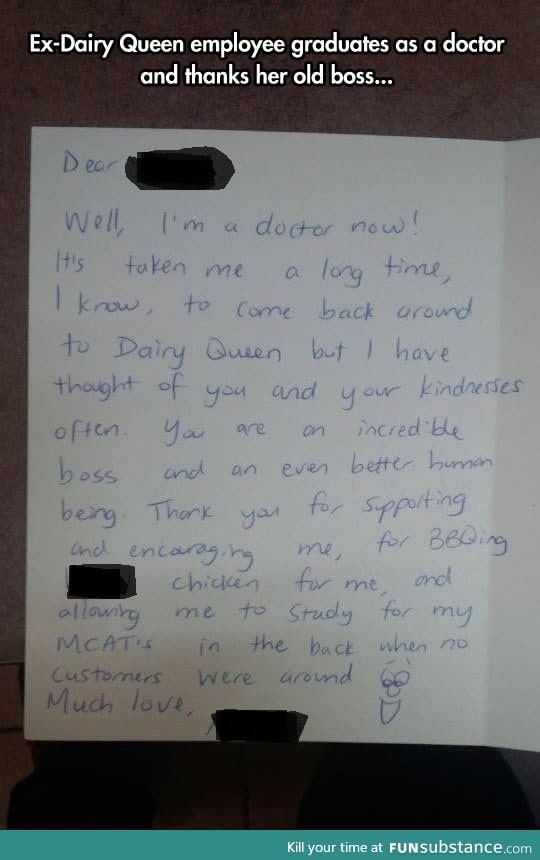 Ex-Dairy Queen employee graduates as a doctor
and thanks her old boss...
Dear
Well, I'm a doctor now!
It's taken me a long time,
I know, to come back around
to Dairy Queen but I have
thought of you and your kindnesses
often. You are an incredible
boss and an even better human
being. Thank you for supporting
and encouraging me, for BBQing
chicken for me, and
allowing me to study for my
MCAT's in the back when no
customers were around
Much love,
Kill your time at FUNsubstance.com